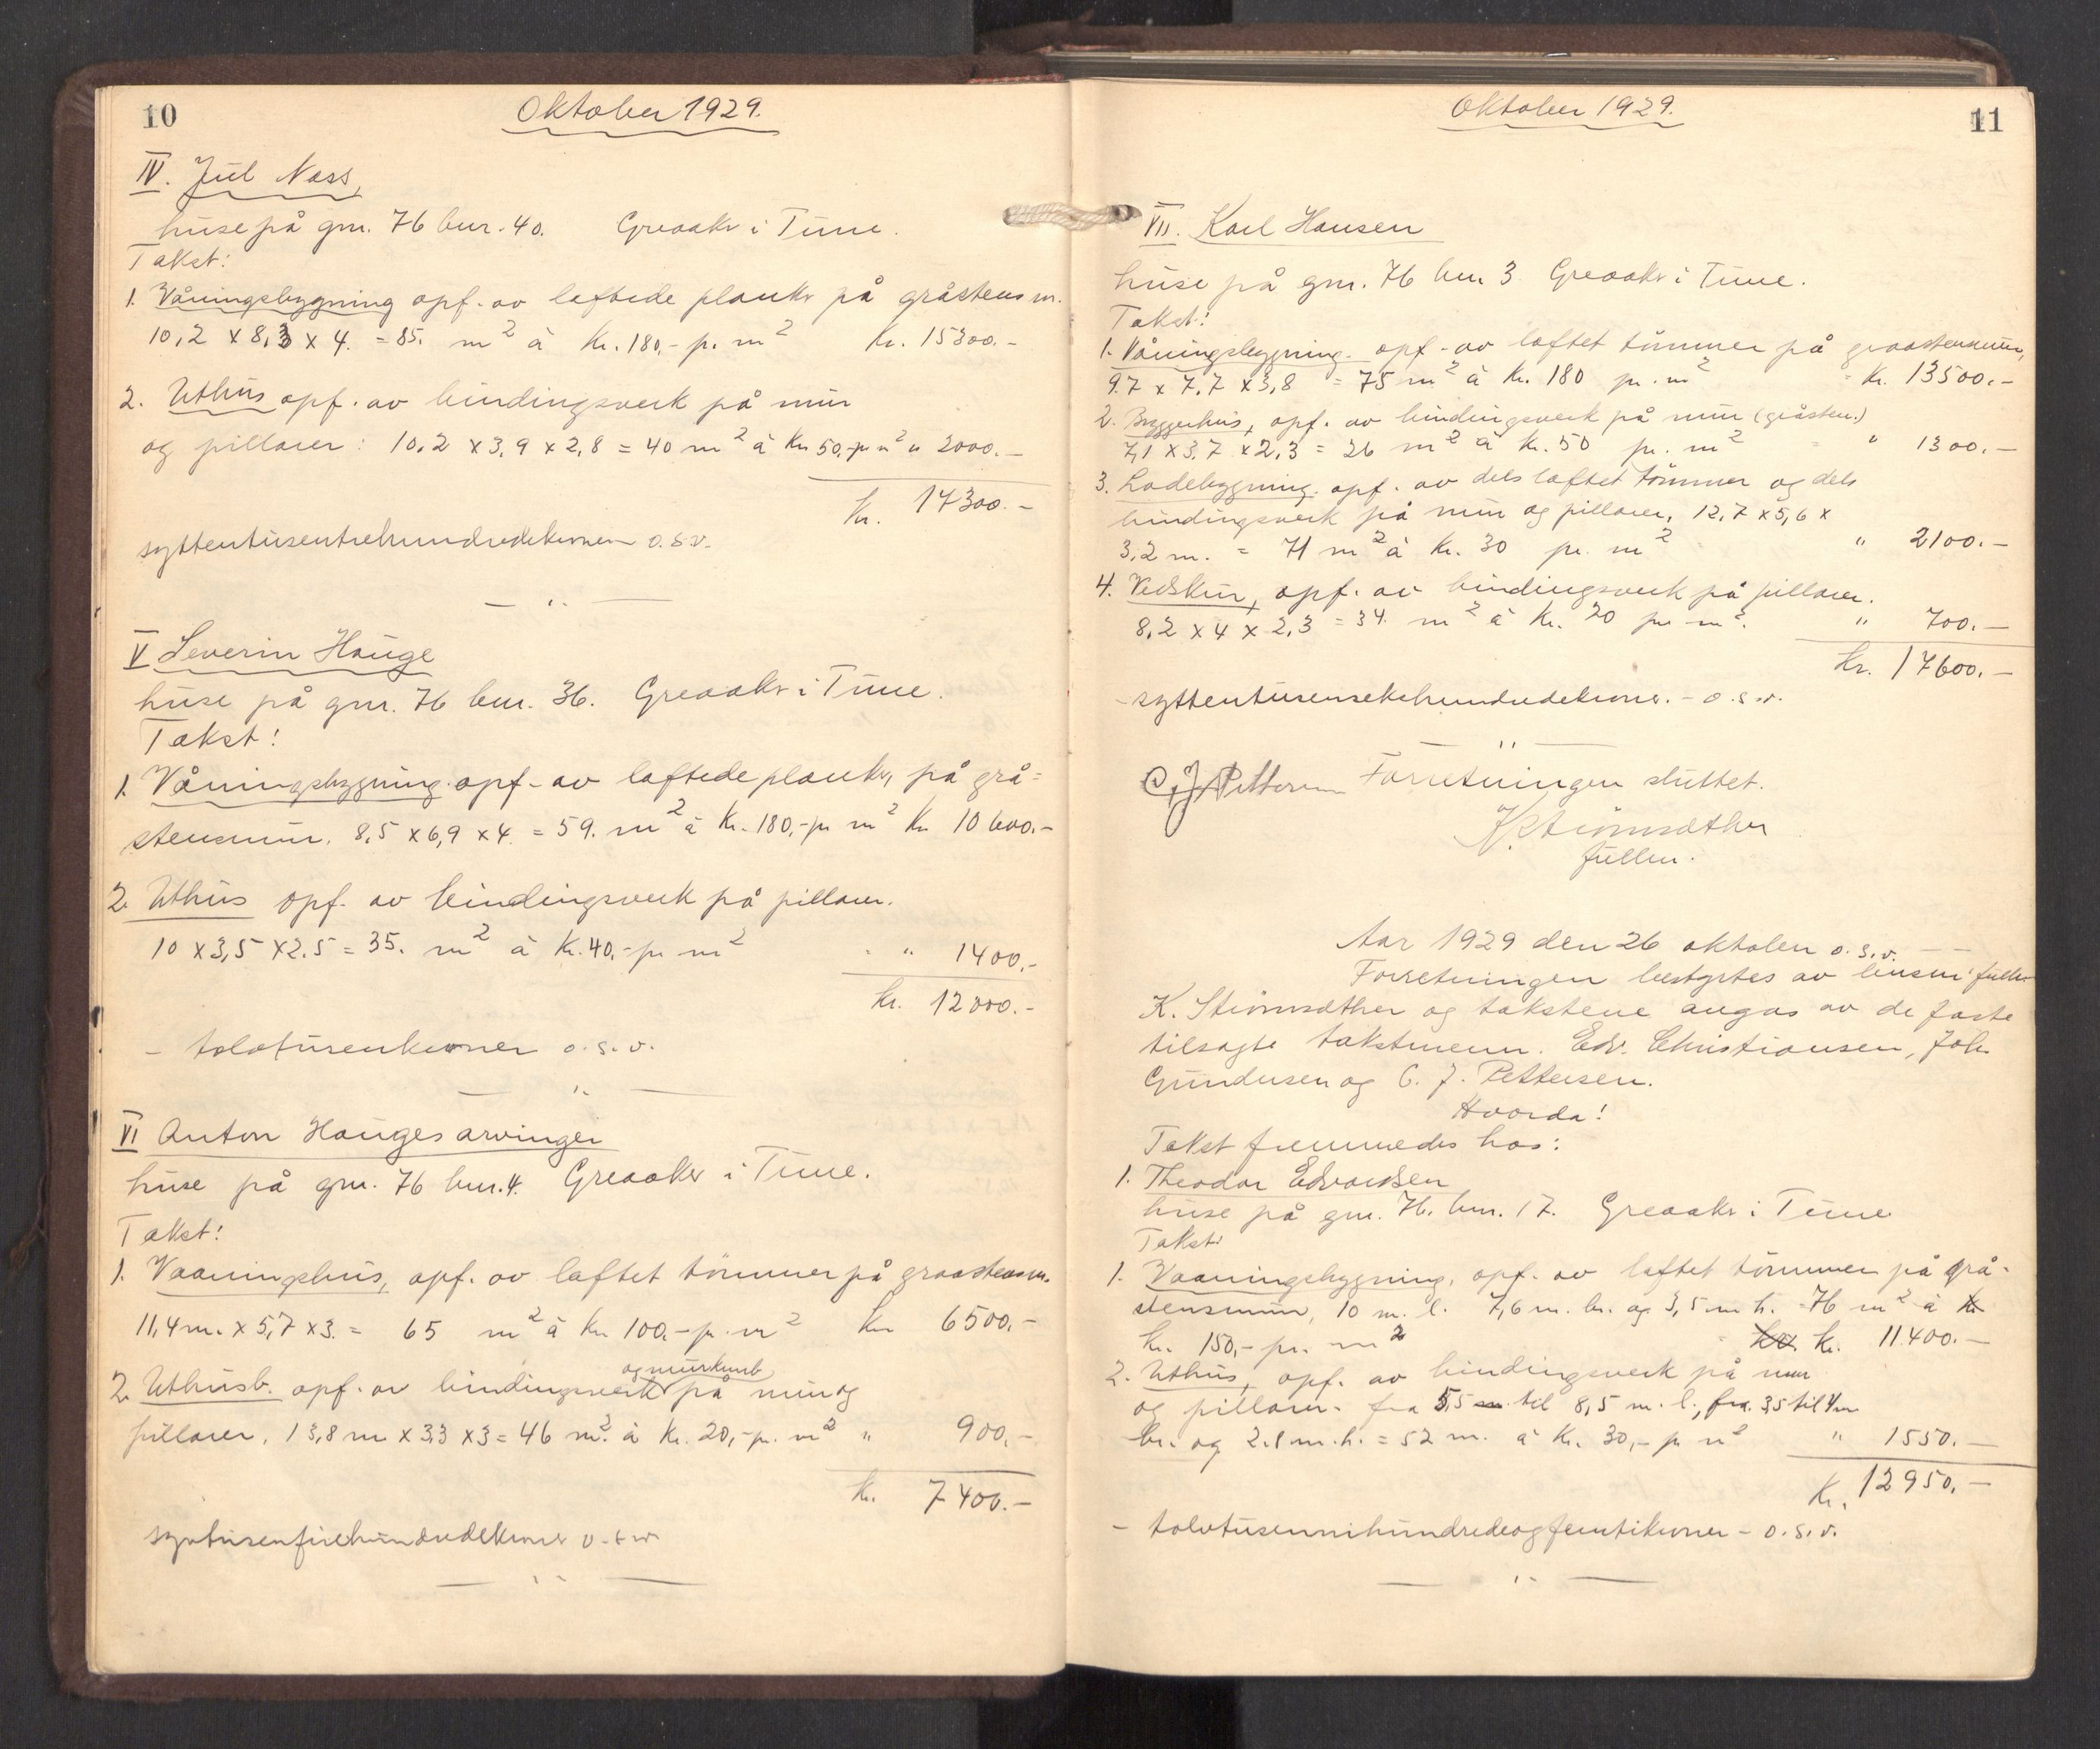 10
Oktober 1929.
IV. Jul Næss,
huse på gnr. 76 bnr. 40. Greaaker i Tune.
Takst:
1. Våningsbygning opf. av laftede planker på gråstensm.
10,2 x 8,3 x 4. = 85. m2 à Kr. 180,- p. m2 Kr. 15300.-
2. Uthus opf. av bindingsverk på mur
og pillarer: 10,2 x 3,9 x 2,8 = 40 m2 à Kr 50,- pr m2 " 2000.-
Kr. 17300.-
syttentusentrehundredekroner o.s.v.
V Severin Hauge
huse på gnr. 76 bnr. 36. Greaaker i Tune.
Takst!
1. Våningsbygning opf. av laftede planker, på grå=
stensmur. 8,5 x 6,9 x 4. = 59. m2 à Kr. 180,- pr m2 Kr 10600.-
2. Uthus opf. av bindingsverk på pillarer.
10 x 3,5 x 2,5 = 35. m2 à Kr. 40,- pr m2 " 1400.-
Kr. 12000.-
- tolvtusenkroner o.s.v.
VI Anton Hauges arvinger
huse på gnr. 76 bnr. 4. Greaaker i Tune.
Takst!
1. Vaaningshus, opf. av laftet tömmer på graastensm.
11,4 m. x 5,7 x 3. = 65 m2 à Kr 100,- pr. m2 Kr 6500.-
og murkonb
2. Uthusb. opf. av bindingsverk på mur og
pillarer, 13,8 m x 3,3 x 3 = 46 m2. à Kr. 20,- p. m2 " 900.-
Kr. 7400.-
syvtusenfirehundredekroner o.s.v.
11
Oktober 1929.
VII. Karl Hansen
huse på gnr. 76 bnr 3. Greaaker i Tune.
Takst!
1. Våningsbygning. opf. av laftet tömmer på graastensmur,
9.7 x 7,7 x 3,8 = 75 m2 à Kr. 180 pr. m2 = Kr. 13500.-
2. Bryggerhus, opf. av bindingsverk på mur (gråsten.)
7,1 x 3,7 x 2,3 = 26 m2 à Kr. 50 pr. m2 = " 1300.-
3. Ladebygning, opf. av dels laftet tömmer og dels
bindingsverk på mur og pillarer, 12,7 x 5,6 x
3,2 m. = 71 m2 à Kr. 30 pr. m2 " 2100.-
4. Vedskur, opf. av bindingsverk på pillarer.
8,2 x 4 x 2,3 = 34. m2 à Kr. 20 pr m2. " 700.-
Kr. 17600.-
- syttentusensekshundredekroner. - o.s.v.
C. J. Pettersen Forretningen sluttet.
K Strømsæther
fullm.
Aar 1929 den 26 oktober o.s.v.
Forretningen bestyrtes av lensm. fullm
K. Strömsæther og takstene avgas av de faste
tilsagte takstmenn. Edv. Christiansen, Joh.
Gundersen og C. J. Pettersen.
Hvorda!
Takst fremmedes hos:
1. Theodor Edvardsen
huse på gnr. 76. bnr. 17. Greaaker i Tune
Takst:
1. Vaaningsbygning, opf. av laftet tömmer på grå=
stensmur, 10 m. l. 7,6 m. br. og 3,5 m h. = 76 m2 à Kr
Kr. 150,- pr. m2 Kr. Kr. 11.400.-
2. Uthus, opf. av bindingsverk på mur
og pillarer. fra 5,5 m til 8,5 m. l., fra 3,5 til 4 m
br. og 2.8 m. h. = 52 m. à Kr. 30,- p m2 " 1550.-
Kr. 12950.-
- tolvtusennihundredeogfemtikroner - o.s.v.